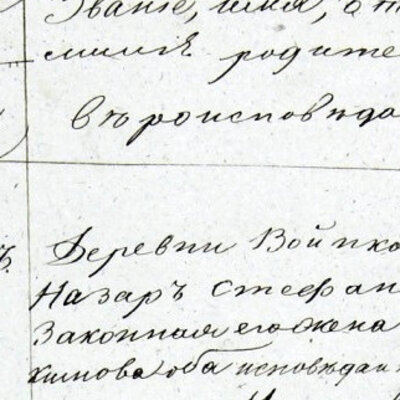 Званіе, имя, от
милія родите
вѣроисповѣда
Деревни Войнко
Назаръ Стефан
Законная его жена
кимова оба исповѣдан